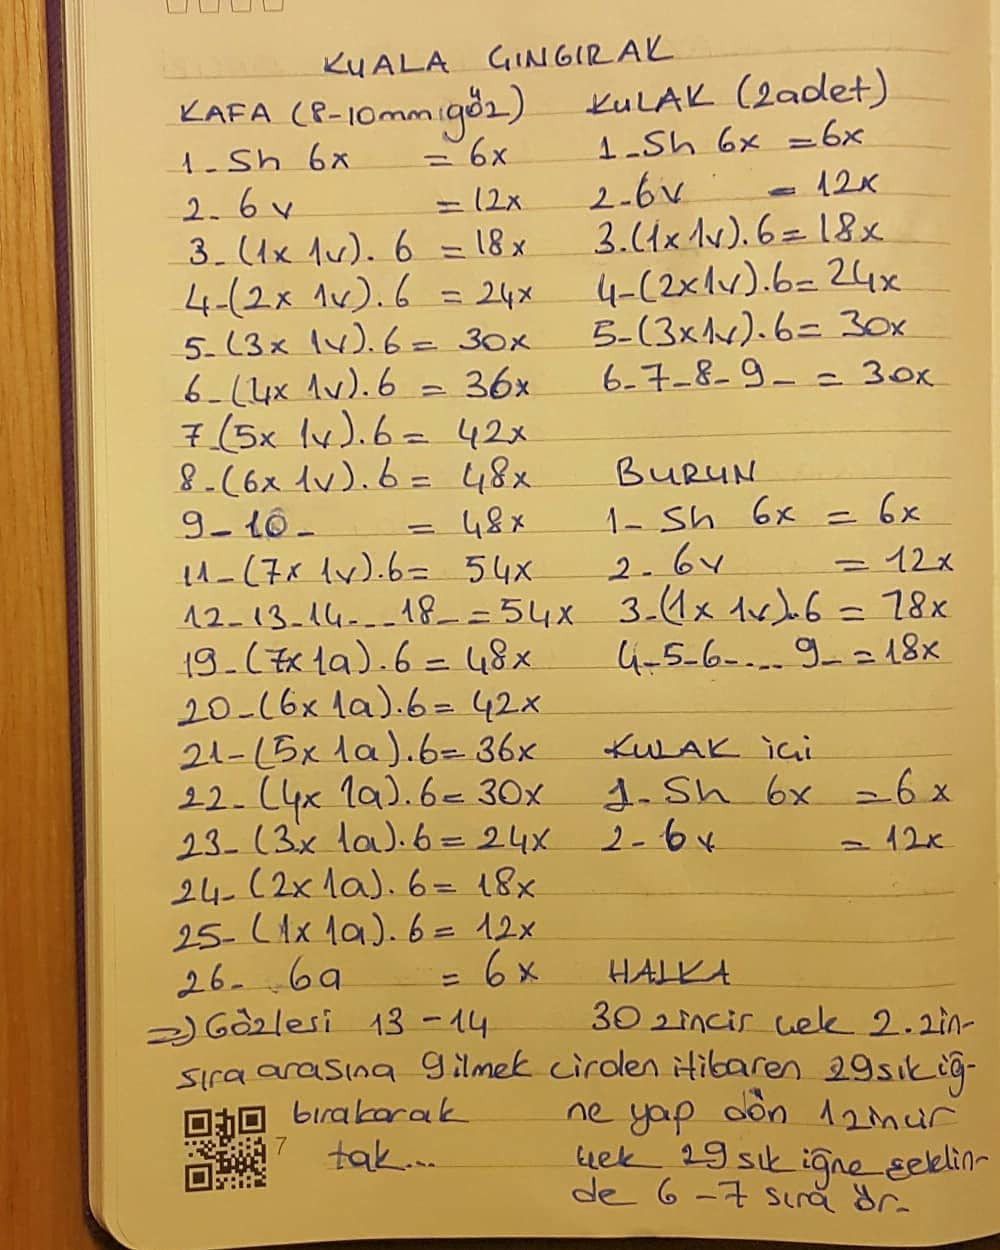 KUALA ÇINGIRAK
KAFA (8-10mm göz)
1- Sh 6x = 6x
2- 6v = 12x
3- (1x 1v). 6 = 18x
4- (2x 1v). 6 = 24x
5- (3x 1v). 6 = 30x
6- (4x 1v). 6 = 36x
7- (5x 1v). 6 = 42x
8- (6x 1v). 6 = 48x
9-10- = 48x
11- (7x 1v). 6 = 54x
12-13-14-...18- = 54x
19- (7x 1a). 6 = 48x
20- (6x 1a). 6 = 42x
21- (5x 1a). 6 = 36x
22- (4x 1a). 6 = 30x
23- (3x 1a). 6 = 24x
24- (2x 1a). 6 = 18x
25- (1x 1a). 6 = 12x
26- 6a = 6x
=> Gözlesi 13-14
sıra arasına 9 ilmek
bırakarak
tak...
7
KULAK (2 adet)
1- Sh 6x = 6x
2- 6v = 12x
3. (1x 1v). 6 = 18x
4- (2x 1v). 6 = 24x
5- (3x 1v). 6 = 30x
6-7-8-9- = 30x
BURUN
1- Sh 6x = 6x
2- 6v = 12x
3- (1x 1v). 6 = 18x
4-5-6-...9- = 18x
KULAK içi
1- Sh 6x = 6x
2- 6v = 12x
HALKA
30 zincir çek 2. zin-
cirden itibaren 29 sık iğ-
ne yap dön 1 zincir
çek 29 sık iğne şeklin-
de 6-7 sıra ör.